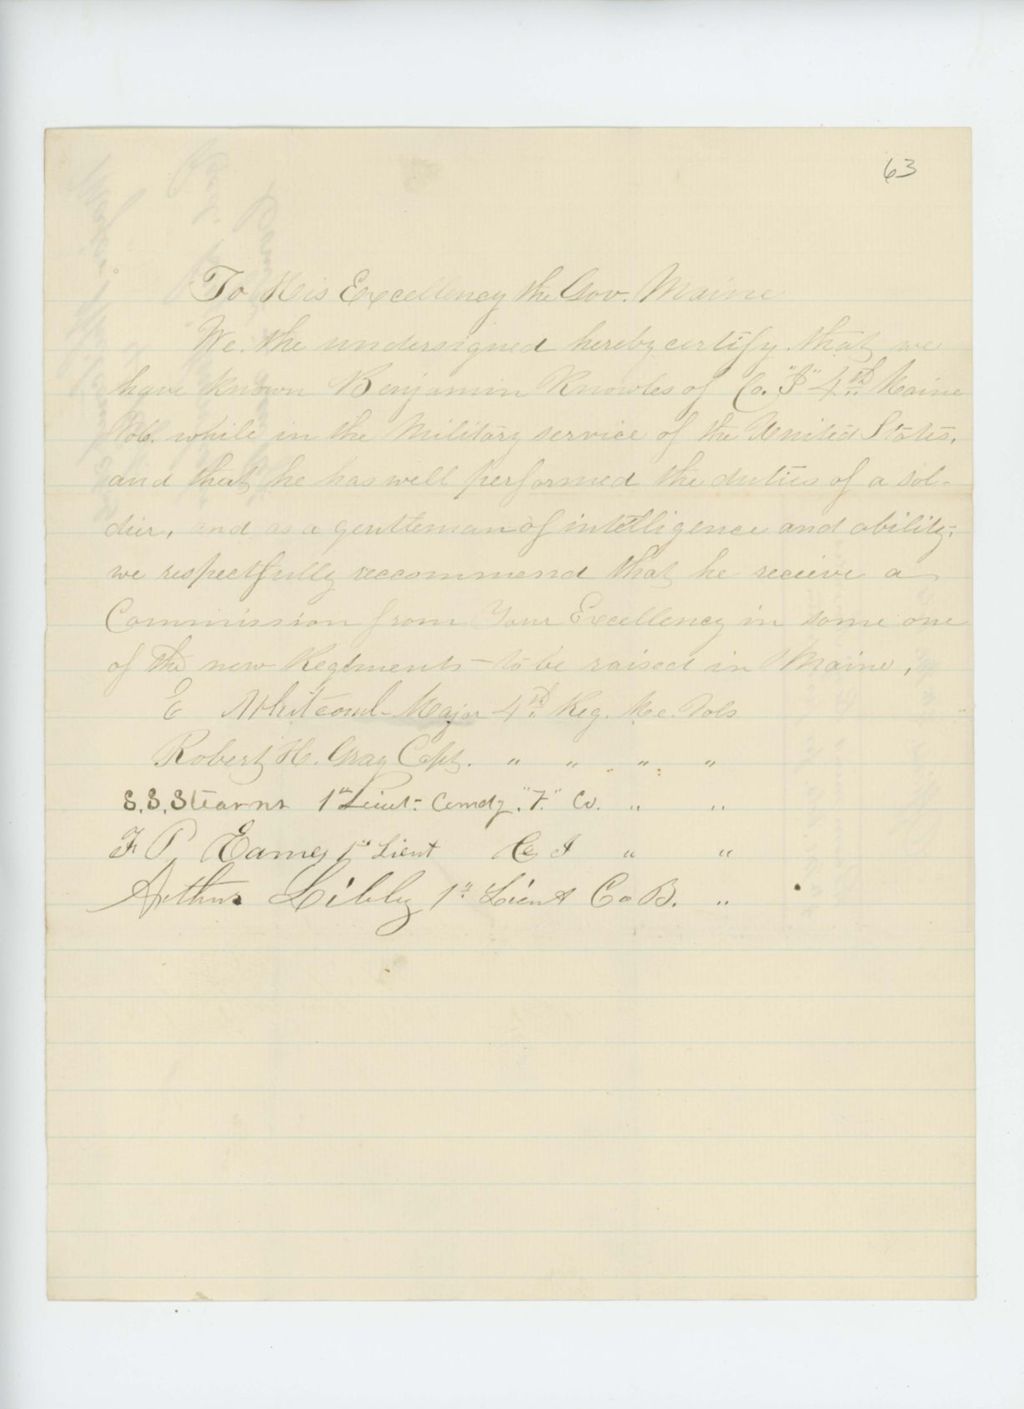 63
To His Excellency the Gov. Maine
We. the undersigned hereby certify. that we
have known Benjamin Knowles of Co. 4th Maine
Vols. while in the Military service of the United States,
and that he has well performed the duties of a sol-
dier, and as a gentleman of intelligence and ability,
we respectfully reccommend that he receive a
Commission from Your Excellency in some one
of the new Regiments - to be raised in Maine.
E Whitcomb - Major 4th Reg. Me. Vols
Robert H. Gray Capt. " " " "
S. S. Stearns 1st Lieut - Comdg. "F." Co. " "
F P. Eames 1st Lieut Co I " "
Arthur Libby 1st Lieut Co B. "